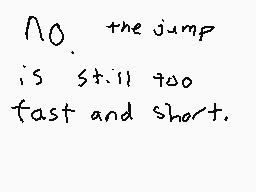 no. the jump
is still too
fast and short.